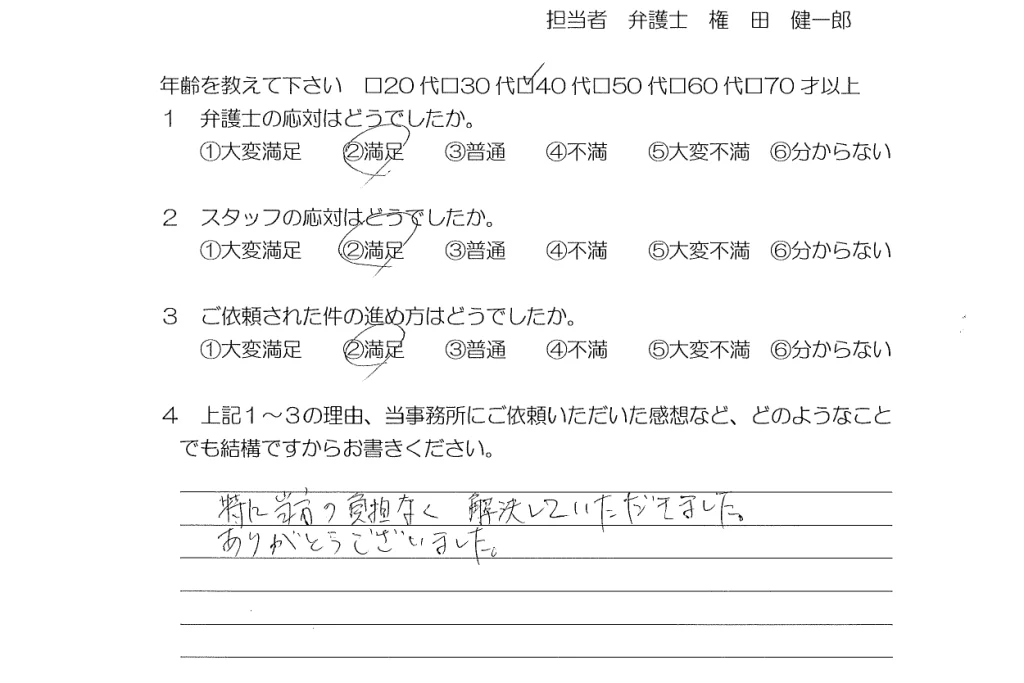 担当者　弁護士　権　田　健一郎
年齢を教えて下さい　□20代□30代☑40代□50代□60代□70才以上
1　弁護士の応対はどうでしたか。
①大変満足　②満足　③普通　④不満　⑤大変不満　⑥分からない
2　スタッフの応対はどうでしたか。
①大変満足　②満足　③普通　④不満　⑤大変不満　⑥分からない
3　ご依頼された件の進め方はどうでしたか。
①大変満足　②満足　③普通　④不満　⑤大変不満　⑥分からない
4　上記1～3の理由、当事務所にご依頼いただいた感想など、どのようなこと
でも結構ですからお書きください。
特に当方の負担なく　解決していただきました。
ありがとうございました。